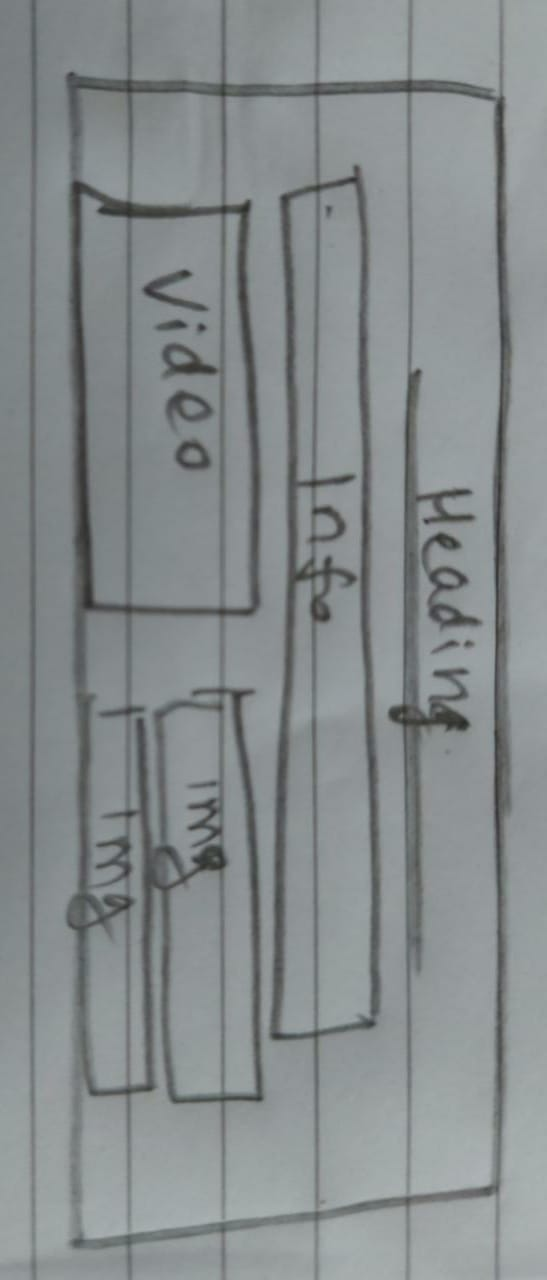 Heading
Info
Video
Img
Img